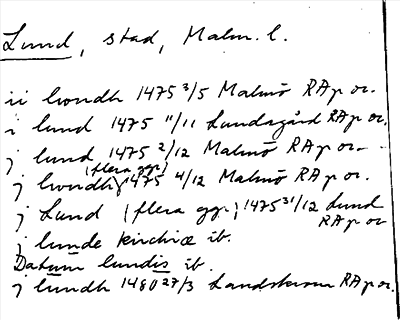 Lund, stad, Malm. l.
ii lvondh 1475 3/5 Malmö RAp or.
i lund 1475 11/11 Lundagård RAp or.
j lund 1475 2/12 Malmö RAp or.
(flera ggr)
j lwndh 1475 4/12 Malmö RAp or.
j Lund (flera ggr) 1475 31/12 Lund
RAp or
j lunde kirchiæ ib.
Datum lundis ib.
j lundh 1480 27/3 Landskrona RAp or.